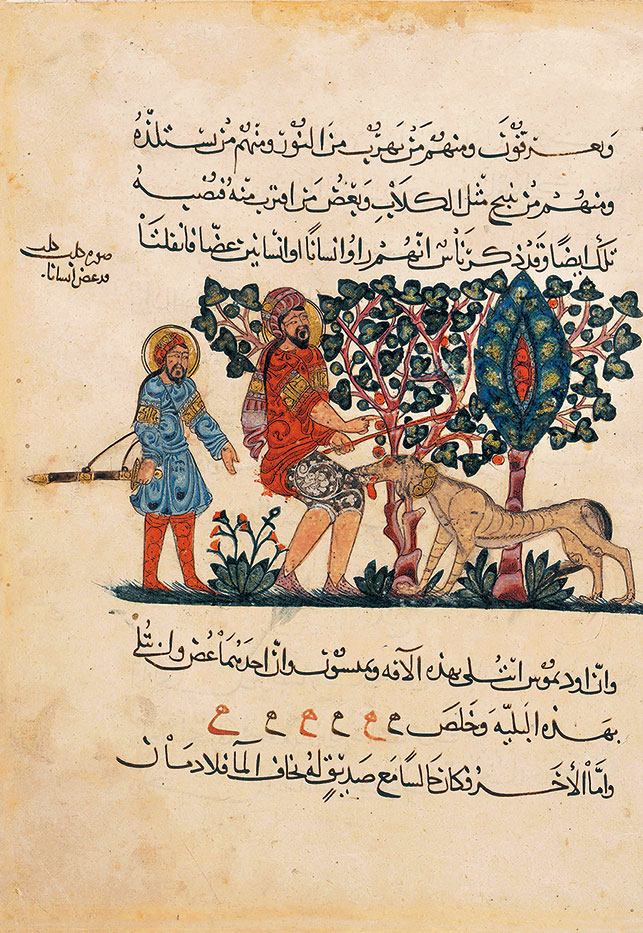 ويعرقون ومنهم من يهرب من النور ومنهم من يستلذه
ومنهم من ينبح مثل الكلاب ويعض من اقترب منه فتصيبه
تلك ايضا وقد ذكر ناس انهم راوا انسانا او انسانين عضا فانفلتا
صورة كلب كلب
قد عض انسانا
وان اوديموس ابتلى بهذه الآفه وان احدهما عض
بهذه البليه وخلص
واما الأخر فكان مع صديق له يخاف الما فلا